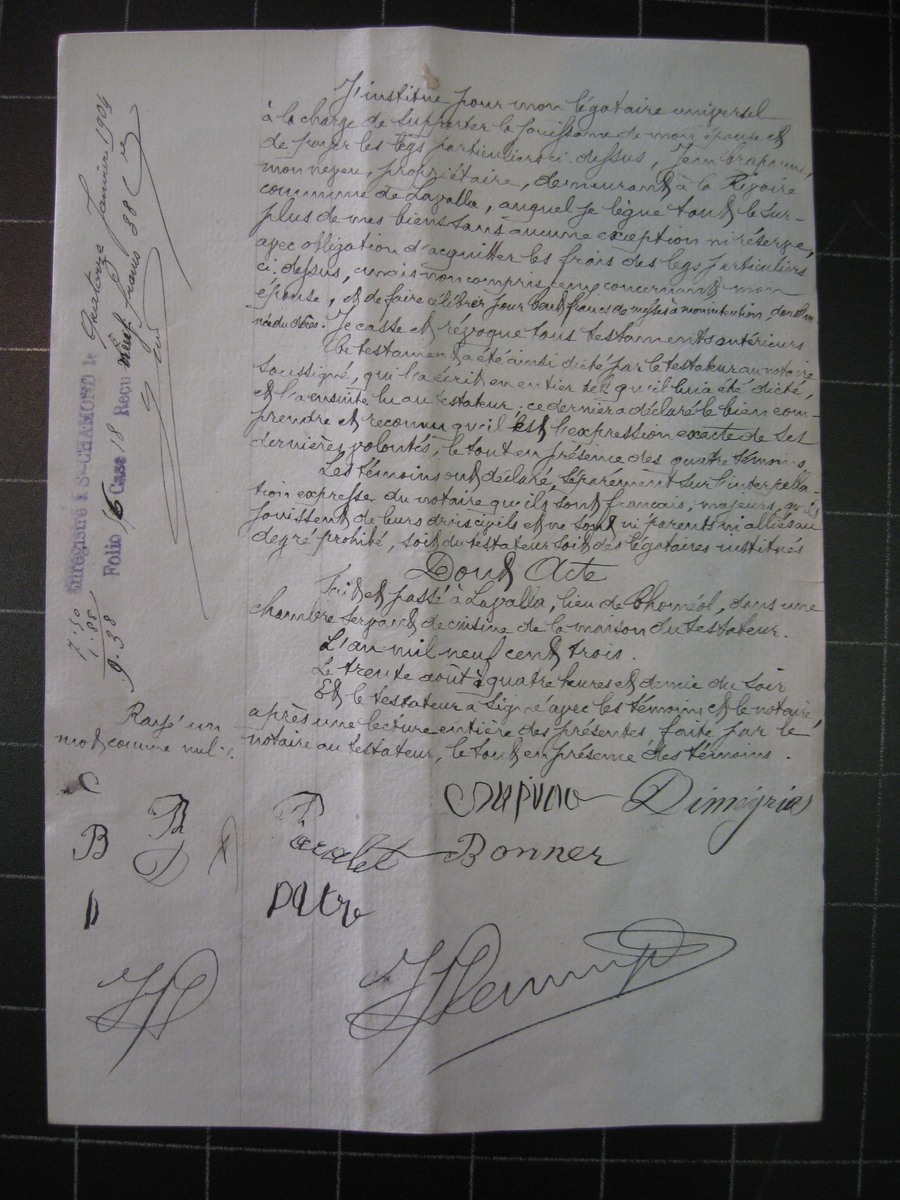 J'institue pour mon légataire universel
à la charge de supporter la jouissance de mon épouse et
de payer les legs particuliers ci-dessus, Jean
mon neveu, propriétaire, demeurant à la Rivoire
commune de Lavalla, auquel je lègue tout le sur-
plus de mes biens sans aucune exception ni réserve,
avec obligation d'acquitter les frais des legs particuliers
ci-dessus, mais non compris ceux concernant mon
épouse, et de faire célébrer pour francs de messes à mon intention, dans l'an
née du décès. Je casse et révoque tous testaments antérieurs
Ce testament a été ainsi dicté par le testateur au notaire
soussigné, qui l'a écrit en entier tel qu'il lui a été dicté,
et l'a ensuite lu au testateur; ce dernier a déclaré le bien com-
prendre et reconnu qu'il est l'expression exacte de ses
dernières volontés, le tout en présence des quatre témoins,
Les témoins ont déclaré, séparément sur l'interpella-
tion expresse du notaire qu'ils sont français, majeurs, qu'ils
jouissent de leurs droits civils et ne sont ni parents ni alliés au
degré prohibé, soit du testateur soit des légataires institués
Dont Acte
Fait et passé à Lavalla, lieu de, dans une
chambre servant de cuisine de la maison du testateur.
L'an mil neuf cent trois.
Le trente août à quatre heures et demie du soir
Et le testateur a signé avec les témoins et le notaire,
après une lecture entière des présentes faite par le
notaire au testateur, le tout en présence des témoins.
Enregistré à St-CHAMOND, le Quatorze Janvier 1904
Folio 16 Case 18 Reçu neuf francs 38 c
7.50
1.88
9.38
Rayé un
mot comme nul
B
B
D
Bonner